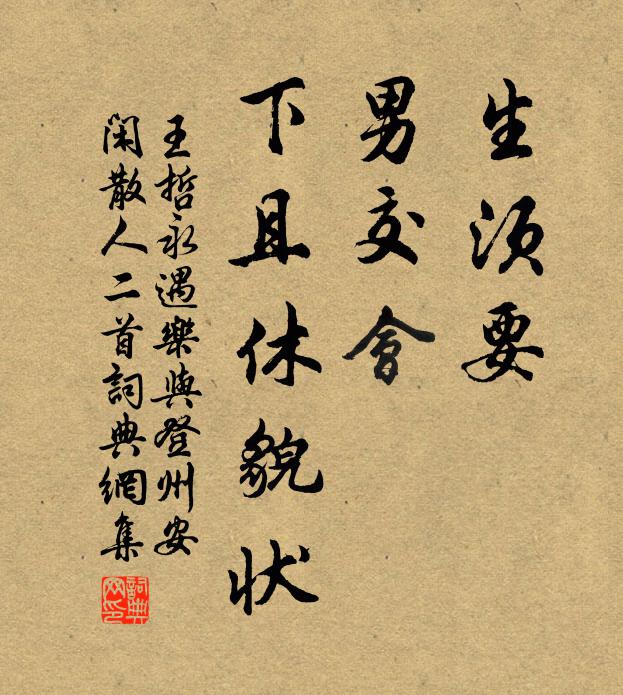 生須要
男交會
下且休貌状
王哲永遇樂與登州安
閑散人二首詞典網集
詞典网印